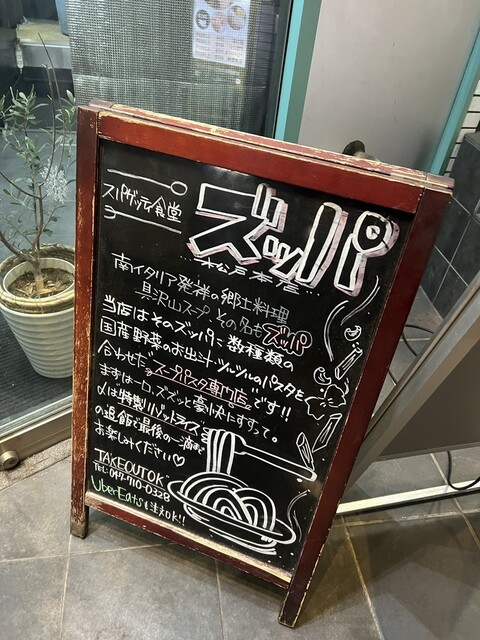 スパゲッティ食堂
ズッパ
松戸本店
南イタリア発祥の郷土料理
具沢山スープ その名もズッパ
当店はそのズッパに数種類の
国産野菜のお出汁とツルツルのパスタを
合わせたスープパスタ専門店です!!
まずは一口、ズズッと豪快にすすって。
〆は特製リゾットライス
の追飯で最後の一滴まで
お楽しみください♡
TAKEOUTOK
TEL:047-710-0328
UberEatsも注文OK!!